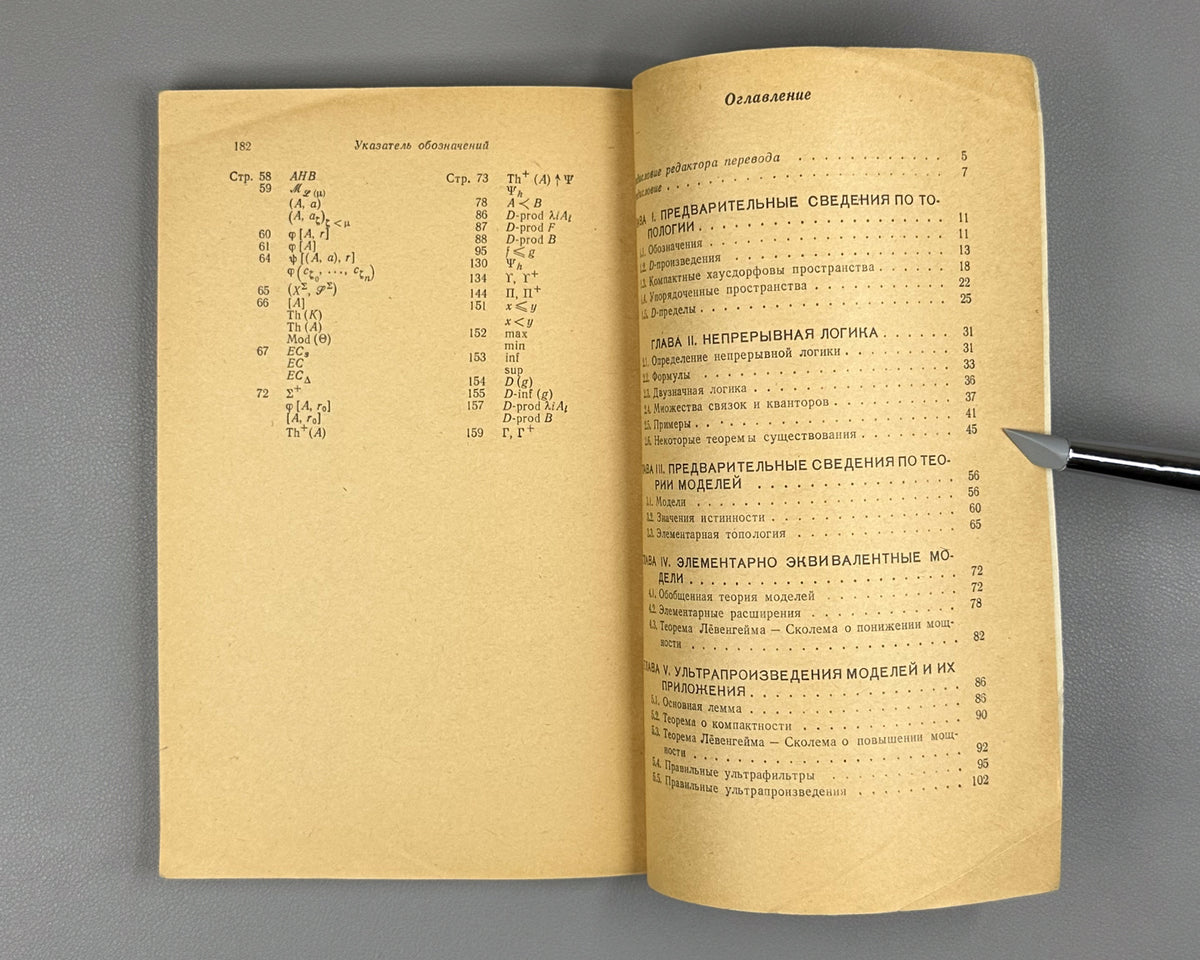 182 Указатель обозначений
Стр. 58 AHB
59 ℳ_ℒ(μ)
(A, a)
(A, a_ζ)_ζ<μ
60 φ [A, r]
61 φ [A]
64 ψ [(A, a), r]
φ (c_ζ₀, ..., c_ζₙ)
65 (X^Σ, 𝒮^Σ)
66 [A]
Th (K)
Th (A)
Mod (Θ)
67 EC₃
EC
EC_Δ
72 Σ⁺
φ [A, r₀]
[A, r₀]
Th⁺(A)
Стр. 73 Th⁺ (A) ↑ Ψ
Ψ_h
78 A ≺ B
86 D-prod λiA_i
87 D-prod F
88 D-prod B
95 f ⩽ g
130 Ψ_h
134 ϒ, ϒ⁺
144 Π, Π⁺
151 x ⩽ y
x < y
152 max
min
153 inf
sup
154 D (g)
155 D-inf (g)
157 D-prod λiA_i
D-prod B
159 Γ, Γ⁺
Оглавление
редактора перевода . . . . . . . . . . . 5
. . . . . . . . . . . . . . . . . . . 7
I. ПРЕДВАРИТЕЛЬНЫЕ СВЕДЕНИЯ ПО ТО-
ПОЛОГИИ . . . . . . . . . . . . . . . . 11
1.1. Обозначения . . . . . . . . . . . . . . 11
1.2. D-произведения . . . . . . . . . . . . . 13
1.3. Компактные хаусдорфовы пространства . . . . . . 18
1.4. Упорядоченные пространства . . . . . . . . . . 22
1.5. D-пределы . . . . . . . . . . . . . . . . 25
ГЛАВА II. НЕПРЕРЫВНАЯ ЛОГИКА . . . . . . 31
2.1. Определение непрерывной логики . . . . . . . . 31
2.2. Формулы . . . . . . . . . . . . . . . . 33
2.3. Двузначная логика . . . . . . . . . . . . . 36
2.4. Множества связок и кванторов . . . . . . . . . 37
2.5. Примеры . . . . . . . . . . . . . . . . 41
2.6. Некоторые теоремы существования . . . . . . . . 45
ГЛАВА III. ПРЕДВАРИТЕЛЬНЫЕ СВЕДЕНИЯ ПО ТЕО-
РИИ МОДЕЛЕЙ . . . . . . . . . . . . . 56
3.1. Модели . . . . . . . . . . . . . . . . . 56
3.2. Значения истинности . . . . . . . . . . . . 60
3.3. Элементарная топология . . . . . . . . . . . 65
ГЛАВА IV. ЭЛЕМЕНТАРНО ЭКВИВАЛЕНТНЫЕ МО-
ДЕЛИ . . . . . . . . . . . . . . . . . 72
4.1. Обобщенная теория моделей . . . . . . . . . . 72
4.2. Элементарные расширения . . . . . . . . . . 78
4.3. Теорема Лёвенгейма — Сколема о понижении мощ-
ности . . . . . . . . . . . . . . . . . 82
ГЛАВА V. УЛЬТРАПРОИЗВЕДЕНИЯ МОДЕЛЕЙ И ИХ
ПРИЛОЖЕНИЯ . . . . . . . . . . . . . . 86
5.1. Основная лемма . . . . . . . . . . . . . . 86
5.2. Теорема о компактности . . . . . . . . . . . 90
5.3. Теорема Лёвенгейма — Сколема о повышении мощ-
ности . . . . . . . . . . . . . . . . . 92
5.4. Правильные ультрафильтры . . . . . . . . . . 95
5.5. Правильные ультрапроизведения . . . . . . . . 102